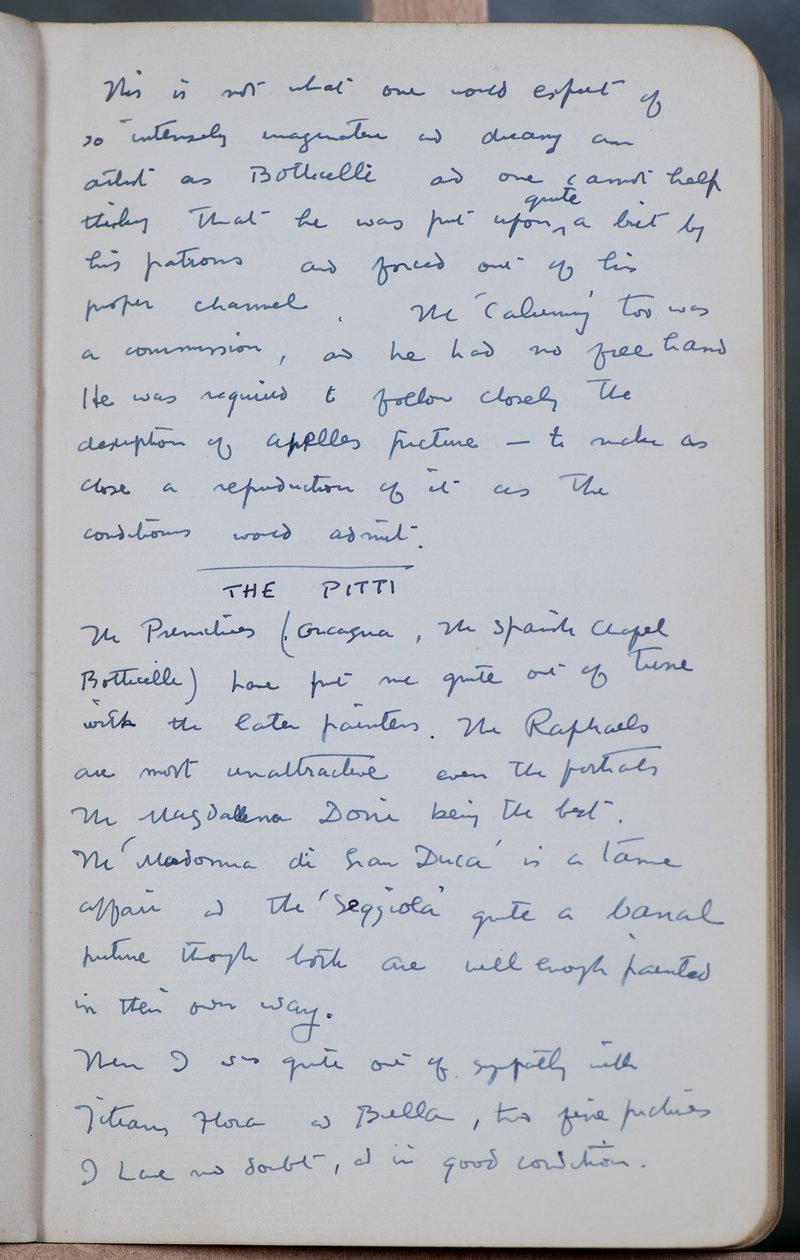 This is not what one would expect of
so intensely imaginative and dreamy an
artist as Botticelli and one cannot help
thinking that he was put upon quite a bit by
his patrons and forced out of his
proper channel. The 'Calumny' too was
a commission, and he had no free hand
He was required to follow closely the
description of Apelles picture — to make as
close a reproduction of it as the
conditions would admit.
THE PITTI
The Primitives (Orcagna, the Spanish Chapel
Botticelli) have put me quite out of tune
with the later painters. The Raphaels
are most unattractive even the portraits
The Magdallena Doni being the best.
The 'Madonna di Gran Duca' is a tame
affair and the 'Seggiola' quite a banal
picture though both are well enough painted
in their own way.
Then I was quite out of sympathy with
Titians Flora and Bella, two fine pictures
I have no doubt, and in good condition.